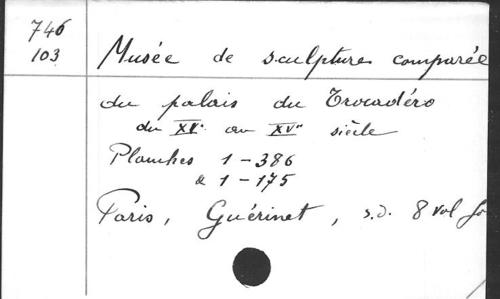 746
103
Musée de sculpture comparée
du palais du Trocadéro
du XIe au XVe siècle
Planches 1-386
& 1-175
Paris, Guérinet, s.d. 8 vol fo